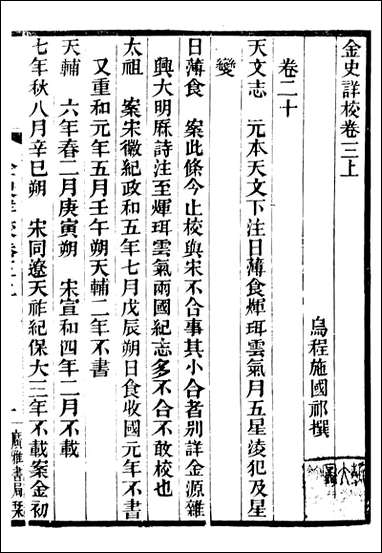 金史詳校卷三上
烏程施國祁撰
卷二十
天文志　元本天文下注日薄食煇珥雲氣月五星淩犯及星
變
日薄食　案此條今止校與宋不合事其小合者別詳金源雜
興大明厤詩注至煇珥雲氣兩國紀志多不合不敢校也
太祖　案宋徽紀政和五年七月戊辰朔日食收國元年不書
又重和元年五月壬午朔天輔二年不書
天輔　六年春二月庚寅朔　宋宣和四年二月不載
七年秋八月辛巳朔　宋同遼天祚紀保大三年不載案金初
廣雅書局栞